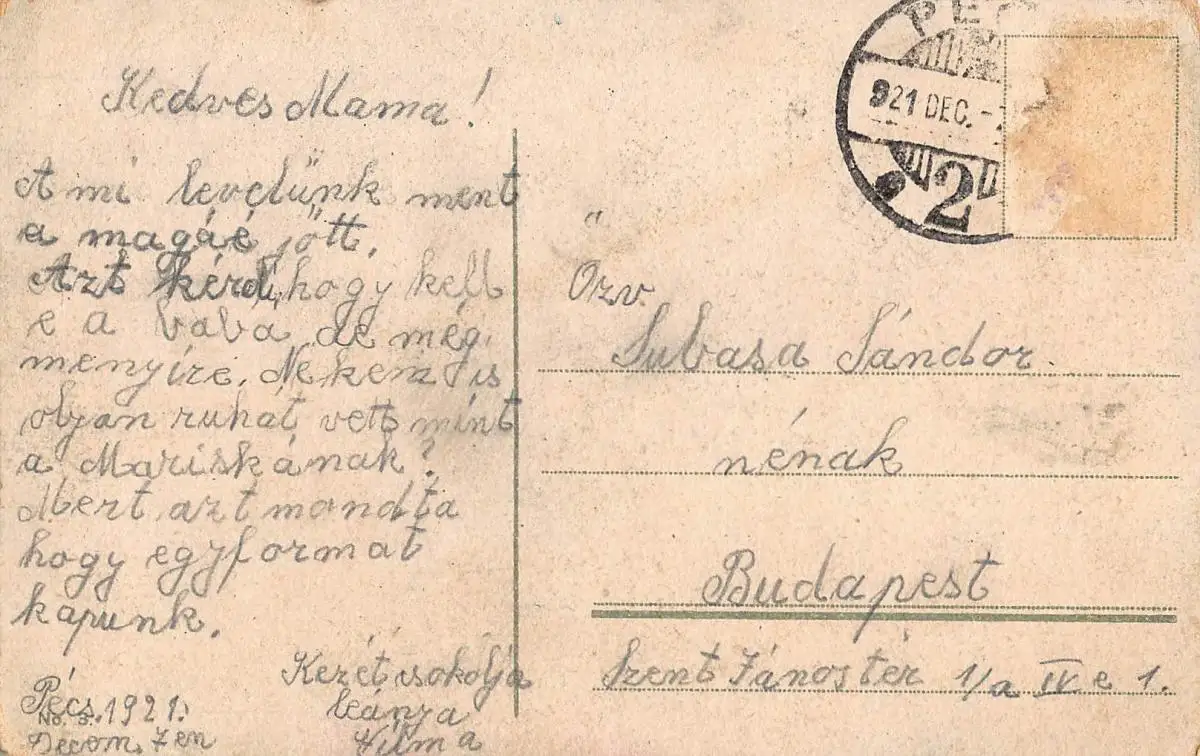 Kedves Mama!
A mi levelünk ment
a magáé jött.
Azt kérdi, hogy kell
e a baba de még
menyire. Nekem is
olyan ruhát vett mint
a Mariskának?
Mert azt mondta
hogy egyformat
kapunk.
Kezét csokolja
leánya
Vilma
Pécs. 1921.
No. 3.
PÉC
921 DEC. -
2
Özv.
Subasa Sándor
nénak
Budapest
Szent Jánostér 1/a IV e 1.